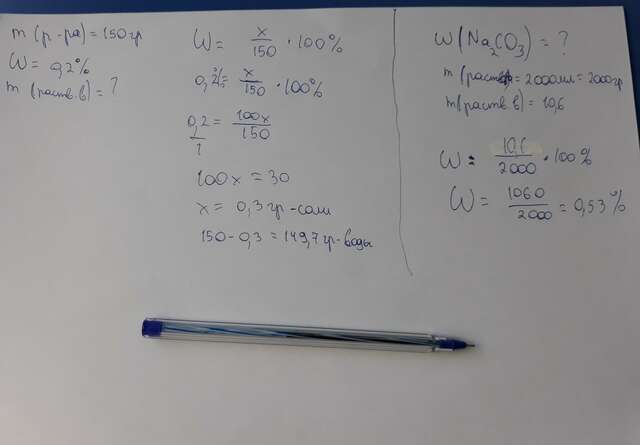 m (р-ра) = 150 гр
W = 0,2%
m (раств.в) = ?
W = x/150 · 100%
0,2% = x/150 · 100%
0,2/1 = 100x/150
?
100x = 30
x = 0,3 гр - соли
150 - 0,3 = 149,7 гр - воды
W (Na₂CO₃) = ?
m (раств = 2000 мл = 2000 гр
m (раств в) = 10,6
W = 10,6/2000 · 100%
W = 1060/2000 = 0,53%